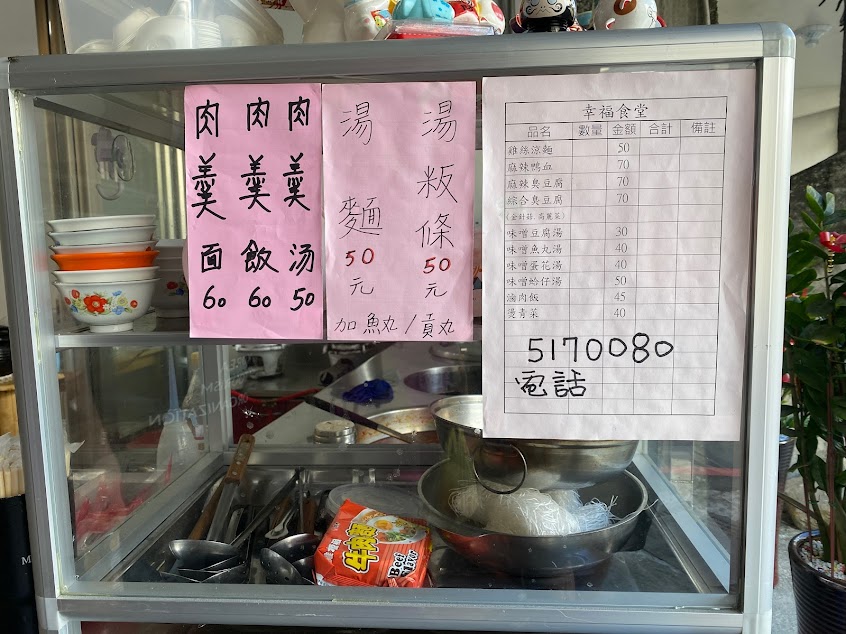 肉羹面60
肉羹飯60
肉羹汤50
湯麵50元
湯粄條50元
加魚丸/貢丸
幸福食堂
品名 數量 金額 合計 備註
雞絲涼麵 50
麻辣鴨血 70
麻辣臭豆腐 70
綜合臭豆腐 70
(金針菇.高麗菜)
味噌豆腐湯 30
味噌魚丸湯 40
味噌蛋花湯 40
味噌蛤仔湯 50
滷肉飯 45
燙青菜 40
5170080
電話
牛肉麵
Beef
Flavor